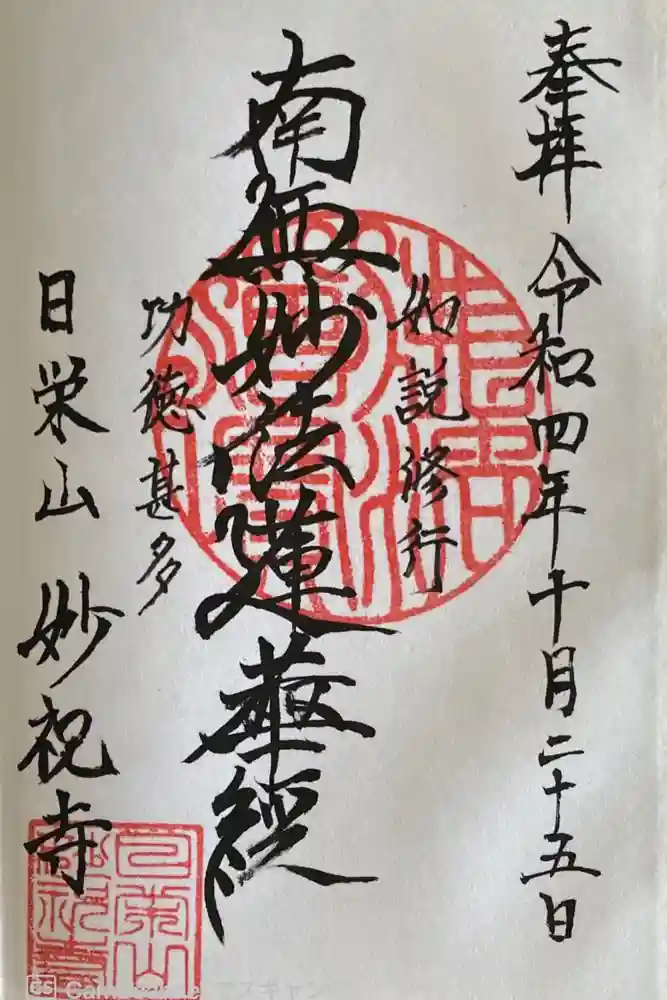 奉拝 令和四年十月二十五日
如説修行
南無妙法蓮華經
功徳甚多
日栄山 妙祝寺
日栄山
妙祝寺
CS CamScanner でスキャン